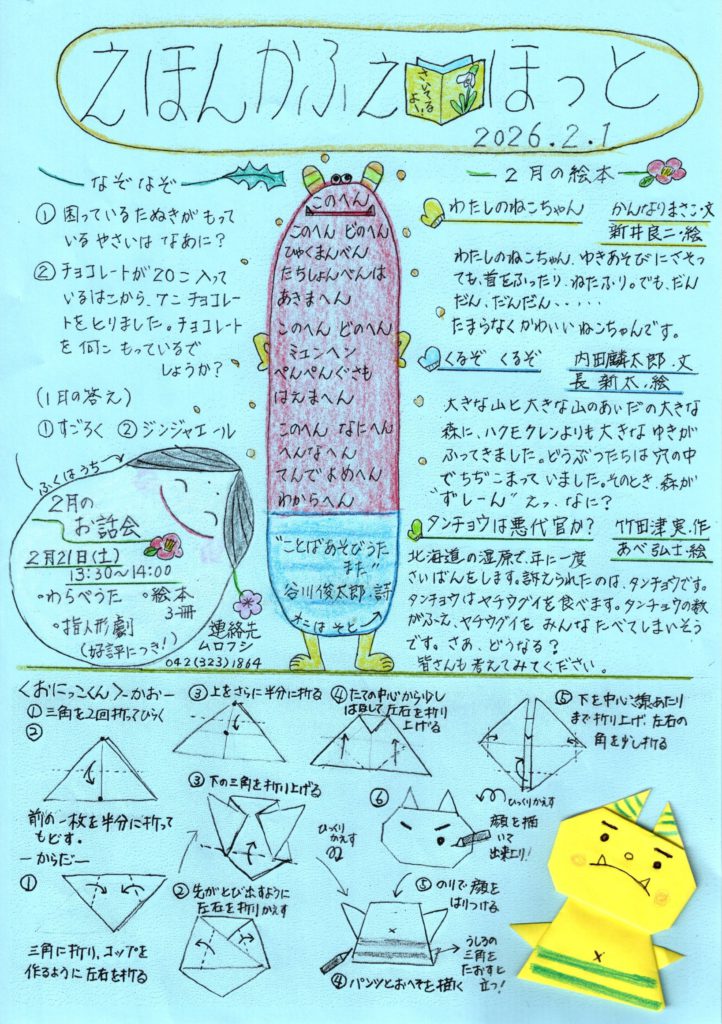 えほんかふぇ
さいてるよ!
ほっと
2026.2.1
なぞなぞ
① 困っているたぬきがもって
いるやさいは なあに?
② チョコレートが20こ入って
いるはこから、7こ チョコレー
トをとりました。チョコレート
を 何こ もっているで
しょうか?
(1月の答え)
①すごろく ②ジンジャエール
ふくはうち
2月の
お話会
2月21日(土)
13:30〜14:00
・わらべうた ・絵本
3冊
・指人形劇
(好評につき!)
連絡先
ムロフシ
042(323)1864
このへん
このへん どのへん
ひゃくまんべん
たちしょんべんは
あきまへん
このへん どのへん
ミュンヘン
ぺんぺんぐさも
はえまへん
このへん なにへん
へんなへん
てんでよめへん
わからへん
"ことばあそびうた
また"
谷川俊太郎.詩
オニはそと
2月の絵本
わたしのねこちゃん かんなりまさこ・文
新井良二・絵
わたしのねこちゃん、ゆきあそびにさそっ
ても、首をふったり、ねたふり。でも、だん
だん、だんだん・・・・・
たまらなくかわいいねこちゃんです。
くるぞ くるぞ 内田麟太郎.文
長 新太.絵
大きな山と大きな山のあいだの大きな
森に、ハクモクレンよりも大きな ゆきが
ふってきました。どうぶつたちは 穴の中
でちぢこまって いました。そのとき、森が
"ずしーん" えっ、なに?
タンチョウは悪代官か? 竹田津 実.作
あべ弘士.絵
北海道の湿原で、年に一度
さいばんをします。訴えられたのは、タンチョウです。
タンチョウはヤチウグイを食べます。タンチョウの数
がふえ、ヤチウグイを みんなたべてしまいそう
です。さあ、どうなる?
皆さんも考えてみてください。
<おにっこくん>-かお-
① 三角を2回折ってひらく
②
前の一枚を半分に折って
もどす。
③ 上をさらに半分に折る
④ たての中心から少し
はなして左右を折り
上げる
⑤ 下を中心線あたり
まで折り上げ 左右の
角を少し折る
ひっくりかえす
⑥
顔を描
いて
出来上り!
-からだ-
①
三角に折り、コップを
作るように 左右を折る
② 先がとび出すように
左右を折りかえす
③ 下の三角を折り上げる
ひっくり
かえす
④ パンツとおへそを描く
⑤ のりで顔を
はりつける
うしろの
三角を
たおすと
立つ!